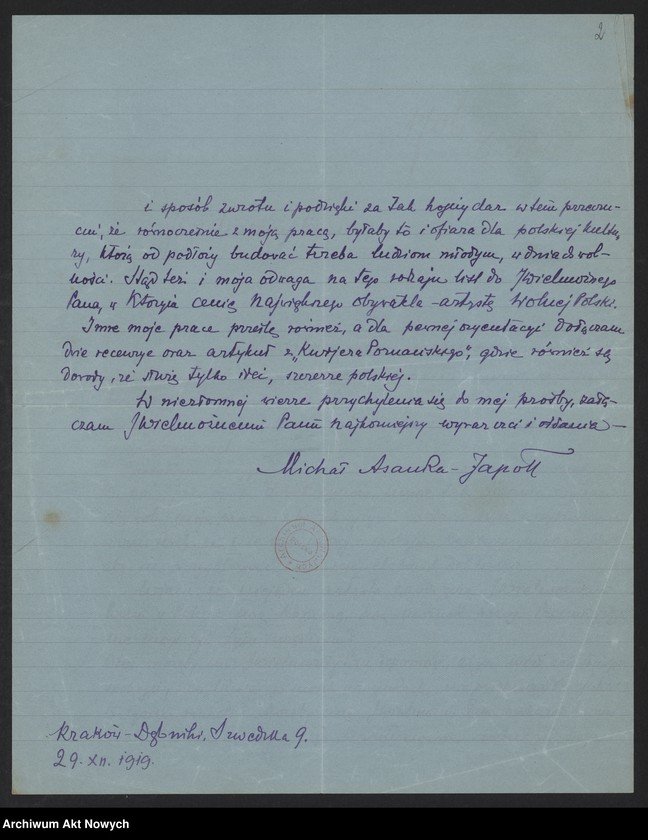 2
i sposób zwrotu i podzięki za tak hojny dar w tem przeczu-
ciu, że równocześnie z moją pracą, byłaby to i ofiara dla polskiej kultu-
ry, którą od podłoży budować trzeba ludziom młodym, w dniach wol-
ności. Stąd też i moja odwaga na tego rodzaju list do JWielmożnego
Pana, w którym cenię największego obywatela-artystę Wolnej Polski.
Inne moje prace prześlę również, a dla pewnej orjentacyi dołączam
dwie recenzye oraz artykuł z „Kurjera Poznańskiego", gdzie również są
dowody, że służę tylko idei, szczerze polskiej.
W niezłomnej wierze przychylenia się do mej prośby, załą-
czam JWielmożnemu Panu najkorniejszy wyraz czci i oddania —
Michał Asanka-Japołł
Kraków-Dębniki, Szwedzka 9.
29. XII. 1919.
Archiwum Akt Nowych